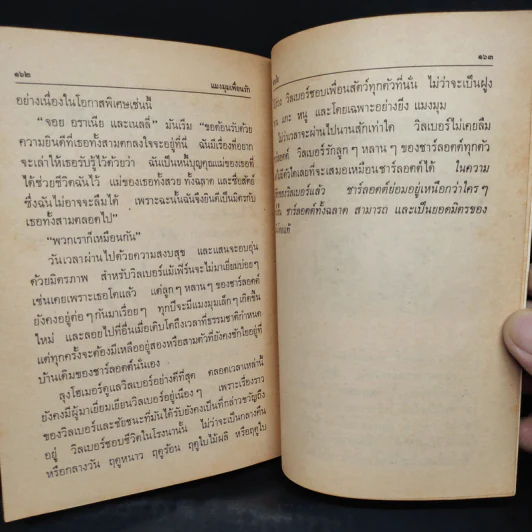 ๑๖๒
แมงมุมเพื่อนรัก
อย่างเนื่องในโอกาสพิเศษเช่นนี้
“จอย อราเนีย และเนลลี่” มันเริ่ม “ขอต้อนรับด้วย
ความยินดีที่เธอทั้งสามตกลงใจจะอยู่ที่นี่ ฉันมีเรื่องที่อยาก
จะเล่าให้เธอรับรู้ไว้ด้วยว่า ฉันเป็นหนี้บุญคุณแม่ของเธอที่
ได้ช่วยชีวิตฉันไว้ แม่ของเธอทั้งสวย ทั้งฉลาด และซื่อสัตย์
ซึ่งฉันไม่อาจจะลืมได้ เพราะฉะนั้นฉันจึงยินดีเป็นมิตรกับ
เธอทั้งสามตลอดไป”
“พวกเราก็เหมือนกัน”
วันเวลาผ่านไปด้วยความสงบสุข และแสนจะอบอุ่น
ด้วยมิตรภาพ สำหรับวิลเบอร์แม้เฟิร์นจะไม่มาเยี่ยมบ่อยๆ
เช่นเคยเพราะเธอโตแล้ว แต่ลูกๆ หลานๆ ของชาร์ลอตต์
ยังคงอยู่ต่อๆ กันมาเรื่อยๆ ทุกปีจะมีแมงมุมเล็กๆ เกิดขึ้น
ใหม่ และลอยไปที่อื่นเมื่อเติบโตถึงเวลาที่ธรรมชาติกำหนด
แต่ทุกครั้งจะต้องมีเหลืออยู่สองหรือสามตัวที่ยังคงชักใยอยู่ที่
บ้านเดิมของชาร์ลอตต์นั่นเอง
ลุงโฮเมอร์ดูแลวิลเบอร์อย่างดีที่สุด ตลอดเวลาเหล่านี้
ยังคงมีผู้มาเยี่ยมเยียนวิลเบอร์อยู่เนืองๆ เพราะเรื่องราว
ของวิลเบอร์และชัยชนะที่มันได้รับยังคงเป็นที่กล่าวขวัญถึง
อยู่ วิลเบอร์ชอบชีวิตในโรงนานั้น ไม่ว่าจะเป็นกลางคืน
หรือกลางวัน ฤดูหนาว ฤดูร้อน ฤดูใบไม้ผลิ หรือฤดูใบ
๑๖๓
วิลเบอร์ชอบเพื่อนสัตว์ทุกตัวที่นั่น ไม่ว่าจะเป็นฝูง
แกะ หนู และโดยเฉพาะอย่างยิ่ง แมงมุม
ไม่ว่าเวลาจะผ่านไปนานสักเท่าใด วิลเบอร์ไม่เคยลืม
วิลเบอร์รักลูกๆ หลานๆ ของชาร์ลอตต์ทุกตัว
ไม่มีตัวใดเลยที่จะเสมอเหมือนชาร์ลอตต์ได้ ในความ
ของวิลเบอร์แล้ว ชาร์ลอตต์ย่อมอยู่เหนือกว่าใครๆ
ชาร์ลอตต์ทั้งฉลาด สามารถ และเป็นยอดมิตรของ